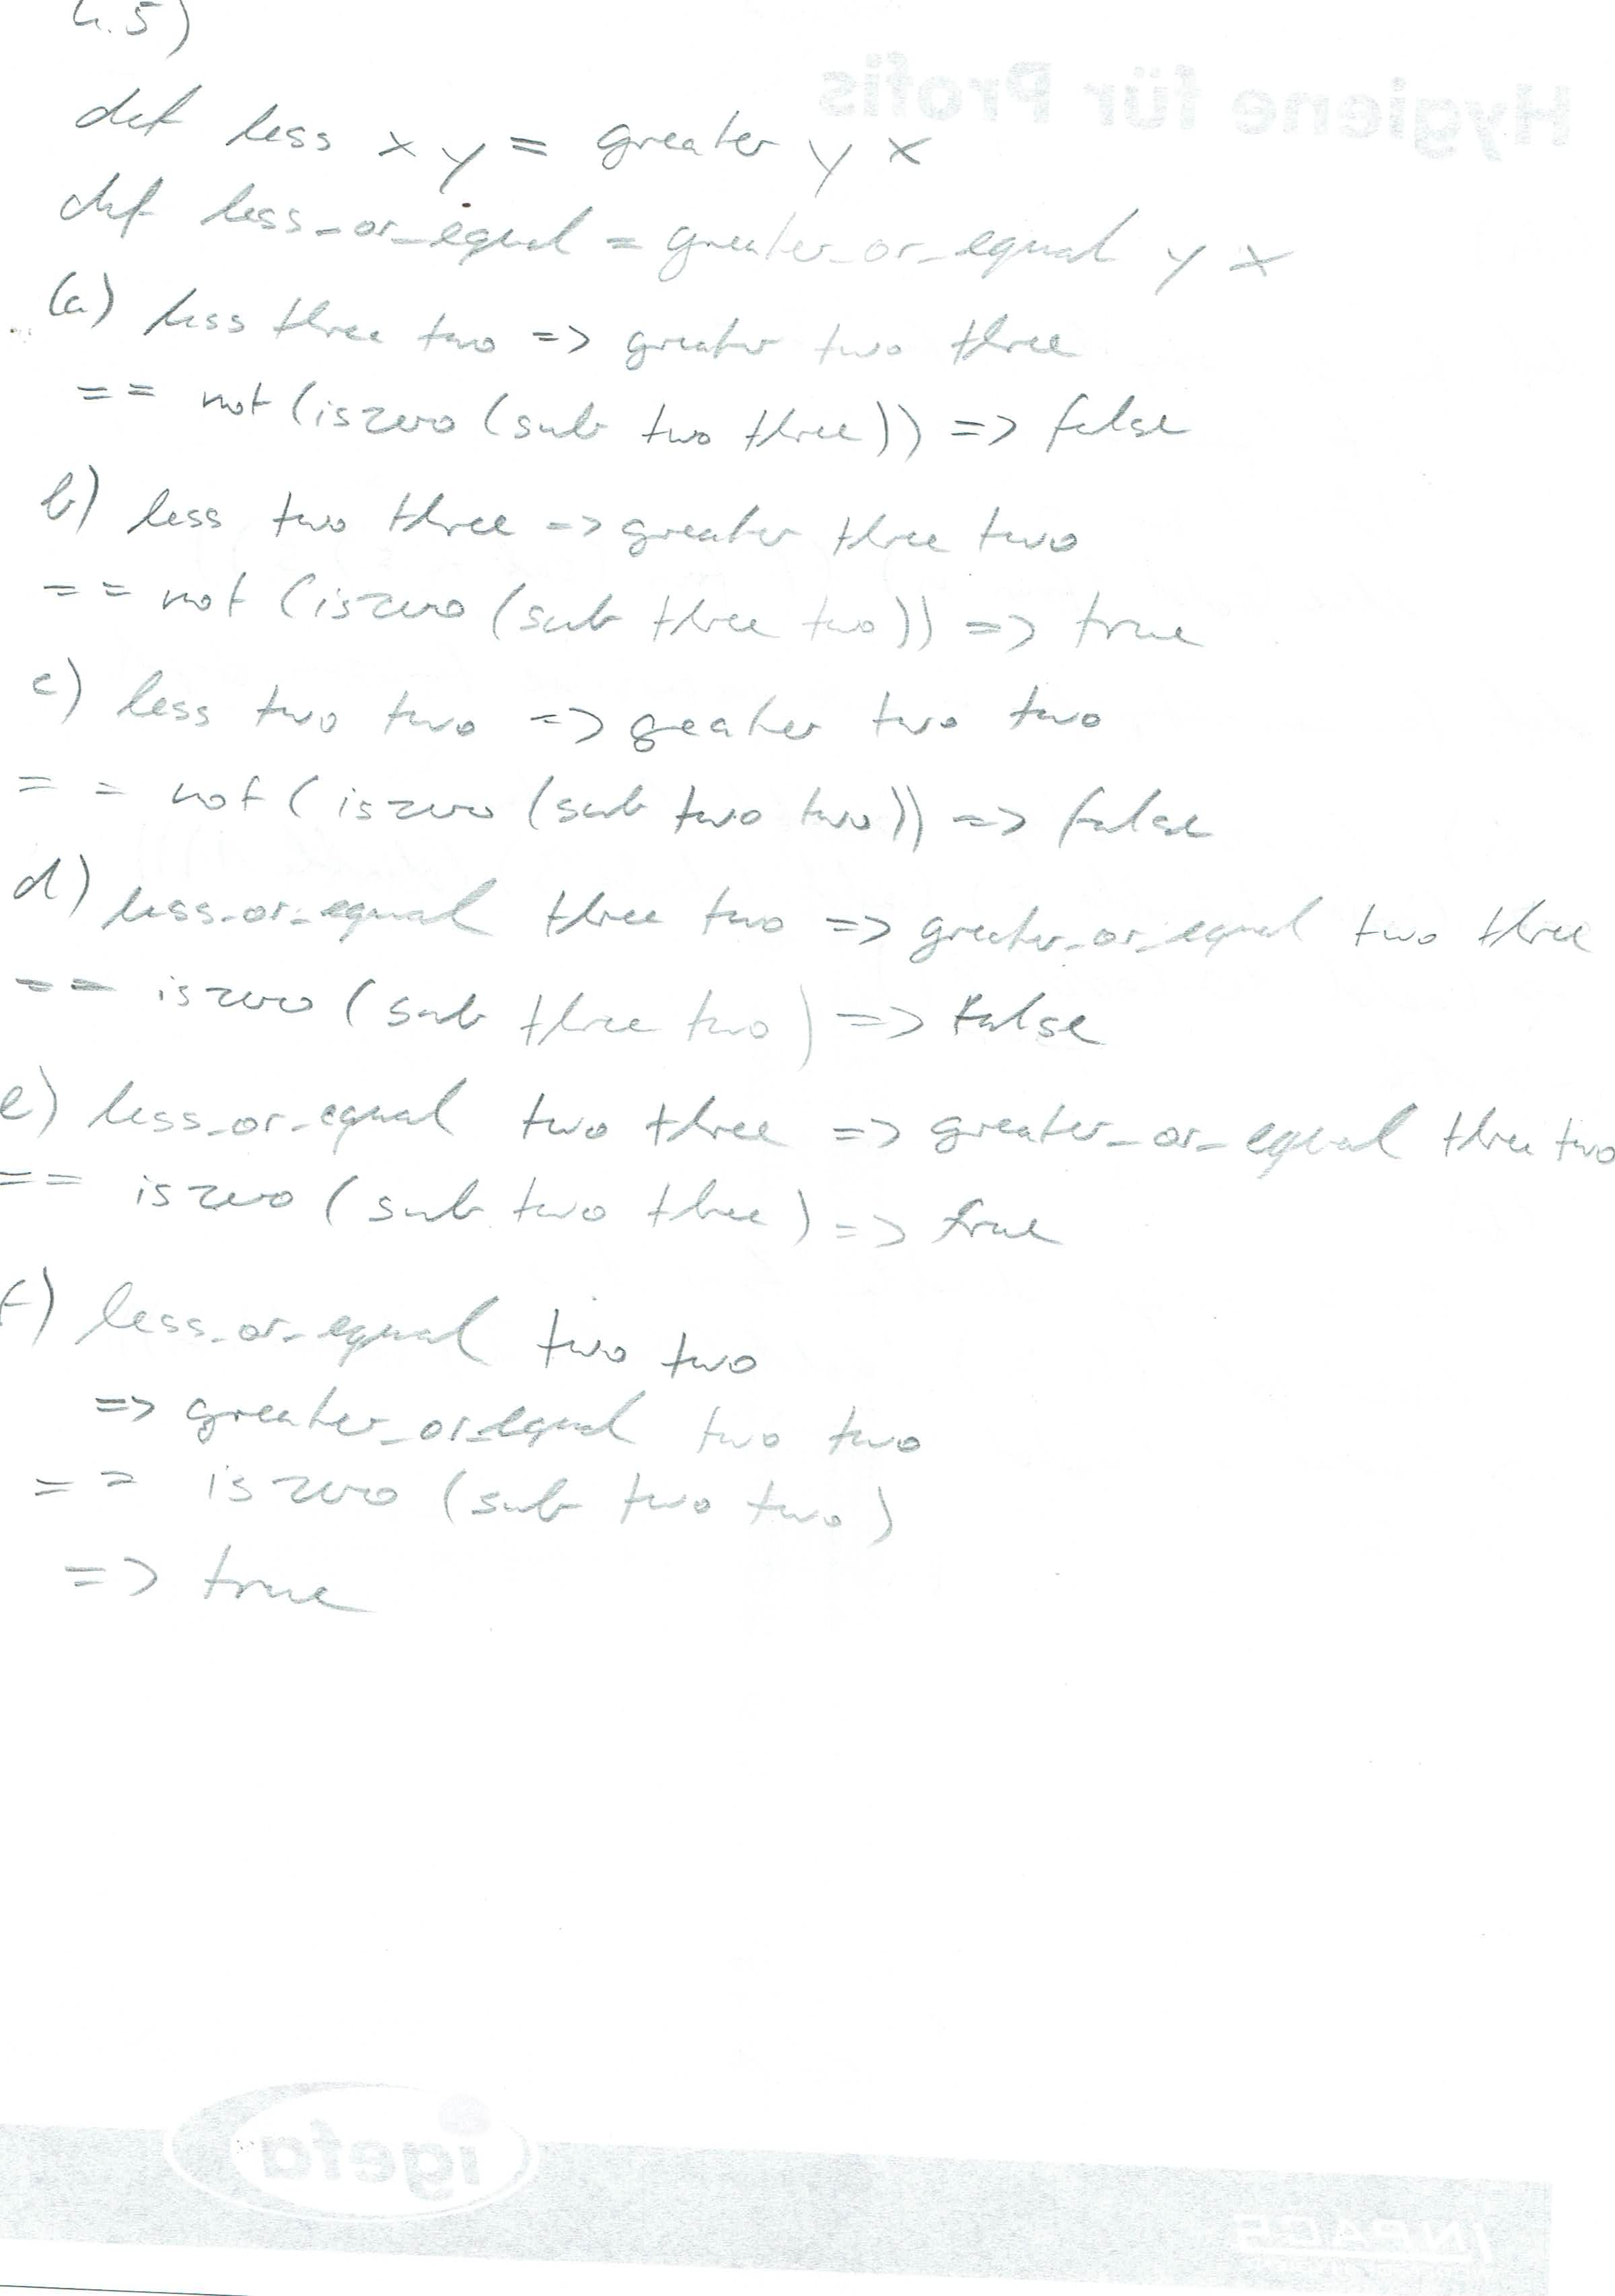 4.5)
Hygiene für Profis
def less x y = greater y x
def less_or_equal = greater_or_equal y x
(a) less three two => greater two three
== not (iszero (sub two three)) => false
b) less two three => greater three two
== not (iszero (sub three two)) => true
c) less two two => greater two two
== not (iszero (sub two two)) => false
d) less_or_equal three two => greater_or_equal two three
== iszero (sub three two) => false
e) less_or_equal two three => greater_or_equal three two
== iszero (sub two three) => true
f) less_or_equal two two
=> greater_or_equal two two
== iszero (sub two two)
=> true
igefa
INPACS